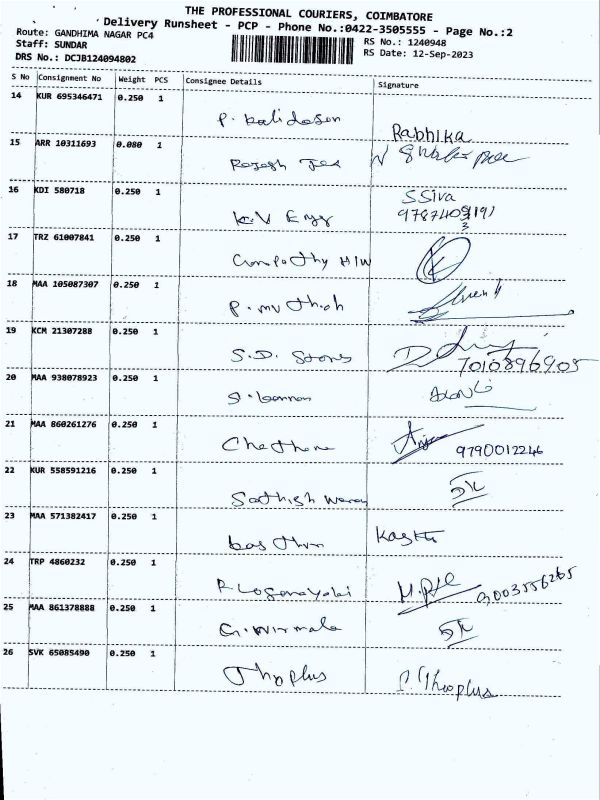 THE PROFESSIONAL COURIERS, COIMBATORE
Delivery Runsheet - PCP - Phone No.:0422-3505555 - Page No.:2
Route: GANDHIMA NAGAR PC4
Staff: SUNDAR
DRS No.: DCJB124094802
RS No.: 1240948
RS Date: 12-Sep-2023
S No Consignment No Weight PCS Consignee Details Signature
14 KUR 695346471 0.250 1 P. Kalidasan Rabhika
15 ARR 10311693 0.080 1 Rajesh
16 KDI 580718 0.250 1 K.V Engg S Siva
17 TRZ 61007841 0.250 1 H/W
18 MAA 105087307 0.250 1 P. Muthah
19 KCM 21307288 0.250 1 S.D. Stores 7010896905
20 MAA 938078923 0.250 1
21 MAA 860261276 0.250 1 Chethana 9790012246
22 KUR 558591216 0.250 1 Sathish
23 MAA 571382417 0.250 1
24 TRP 4860232 0.250 1 9003556265
25 MAA 861378888 0.250 1 G. Nirmala
26 SVK 65085490 0.250 1